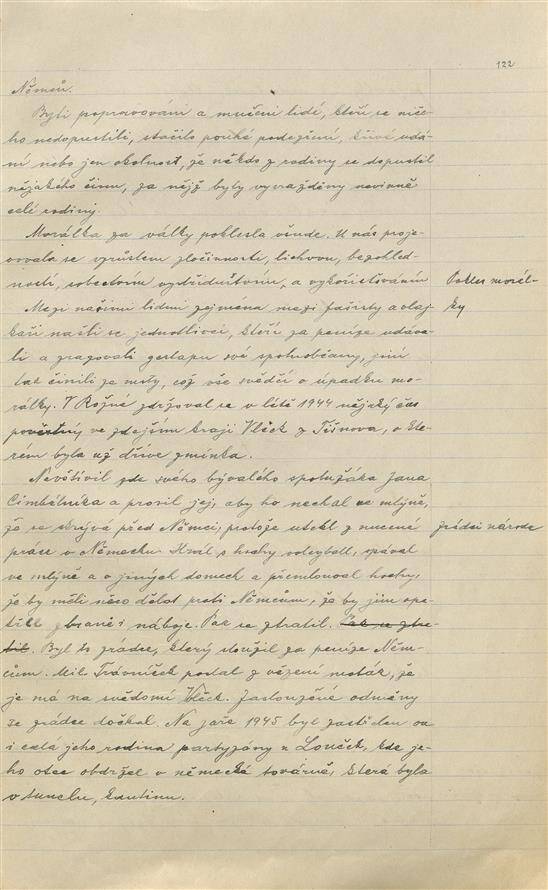 122
Němců.
Byli popravováni a mučeni lidé, kteří se niče-
ho nedopustili, stačilo pouhé podezření, křivé udá-
ní nebo jen okolnost, že někdo z rodiny se dopustil
nějakého činu, za nějž byly vyvražděny nevinně
celé rodiny.
Morálka za války poklesla všude. U nás proje-
vovala se vzrůstem zločinnosti, lichvou, bezohled-
ností, sobectvím, a vykořisťováním
Pokles morál-
ky
Mezi našimi lidmi zejména mezi fašisty a vlaj-
kaři našli se jednotlivci, kteří za peníze udáva-
li a prozrazovali gestapu své spoluobčany, jiní
tak činili ze msty, což vše svědčí o úpadku mo-
rálky. V Rožné zdržoval se v létě 1944 nějaký čas
pověstný ve zdejším kraji Vlček z Tišnova, o kte-
rém byla už dříve zmínka.
Navštívil zde svého bývalého spolužáka Jana
Cimbálníka a prosil jej, aby ho nechal ve mlýně,
že se skrývá před Němci, protože utekl z nucené
zrádci národa
práce v Německu. Hrál s hochy volleyball, spával
ve mlýně a v jiných domech a přemlouval hochy,
že by měli něco dělat proti Němcům, že by jim opa-
třil zbraně i náboje. Pak se ztratil. Pak se ztra-
til. Byl to zrádce, který sloužil za peníze Něm-
cům. Mil. Trávníček poslal z vězení moták, že
je má na svědomí Vlček. Zasloužené odměny
se zrádce dočkal. Na jaře 1945 byl zastřelen on
i celá jeho rodina partyzány u Louček, kde je-
ho otec obdržel v německé továrně, která byla
v tunelu, kantinu.